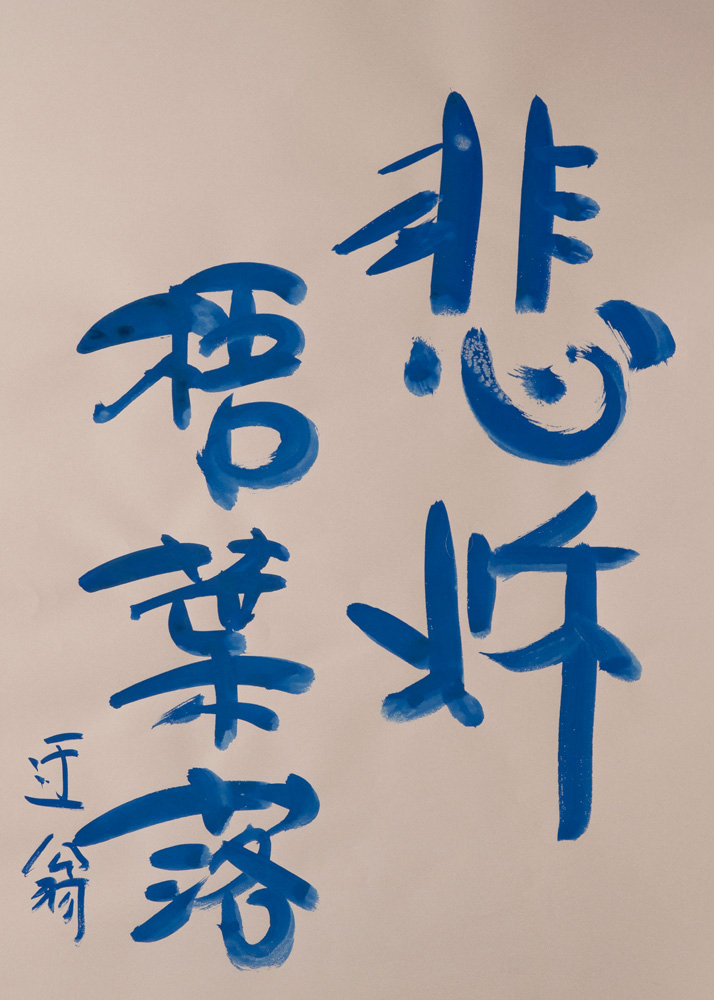 悲
梧葉落
迂翁